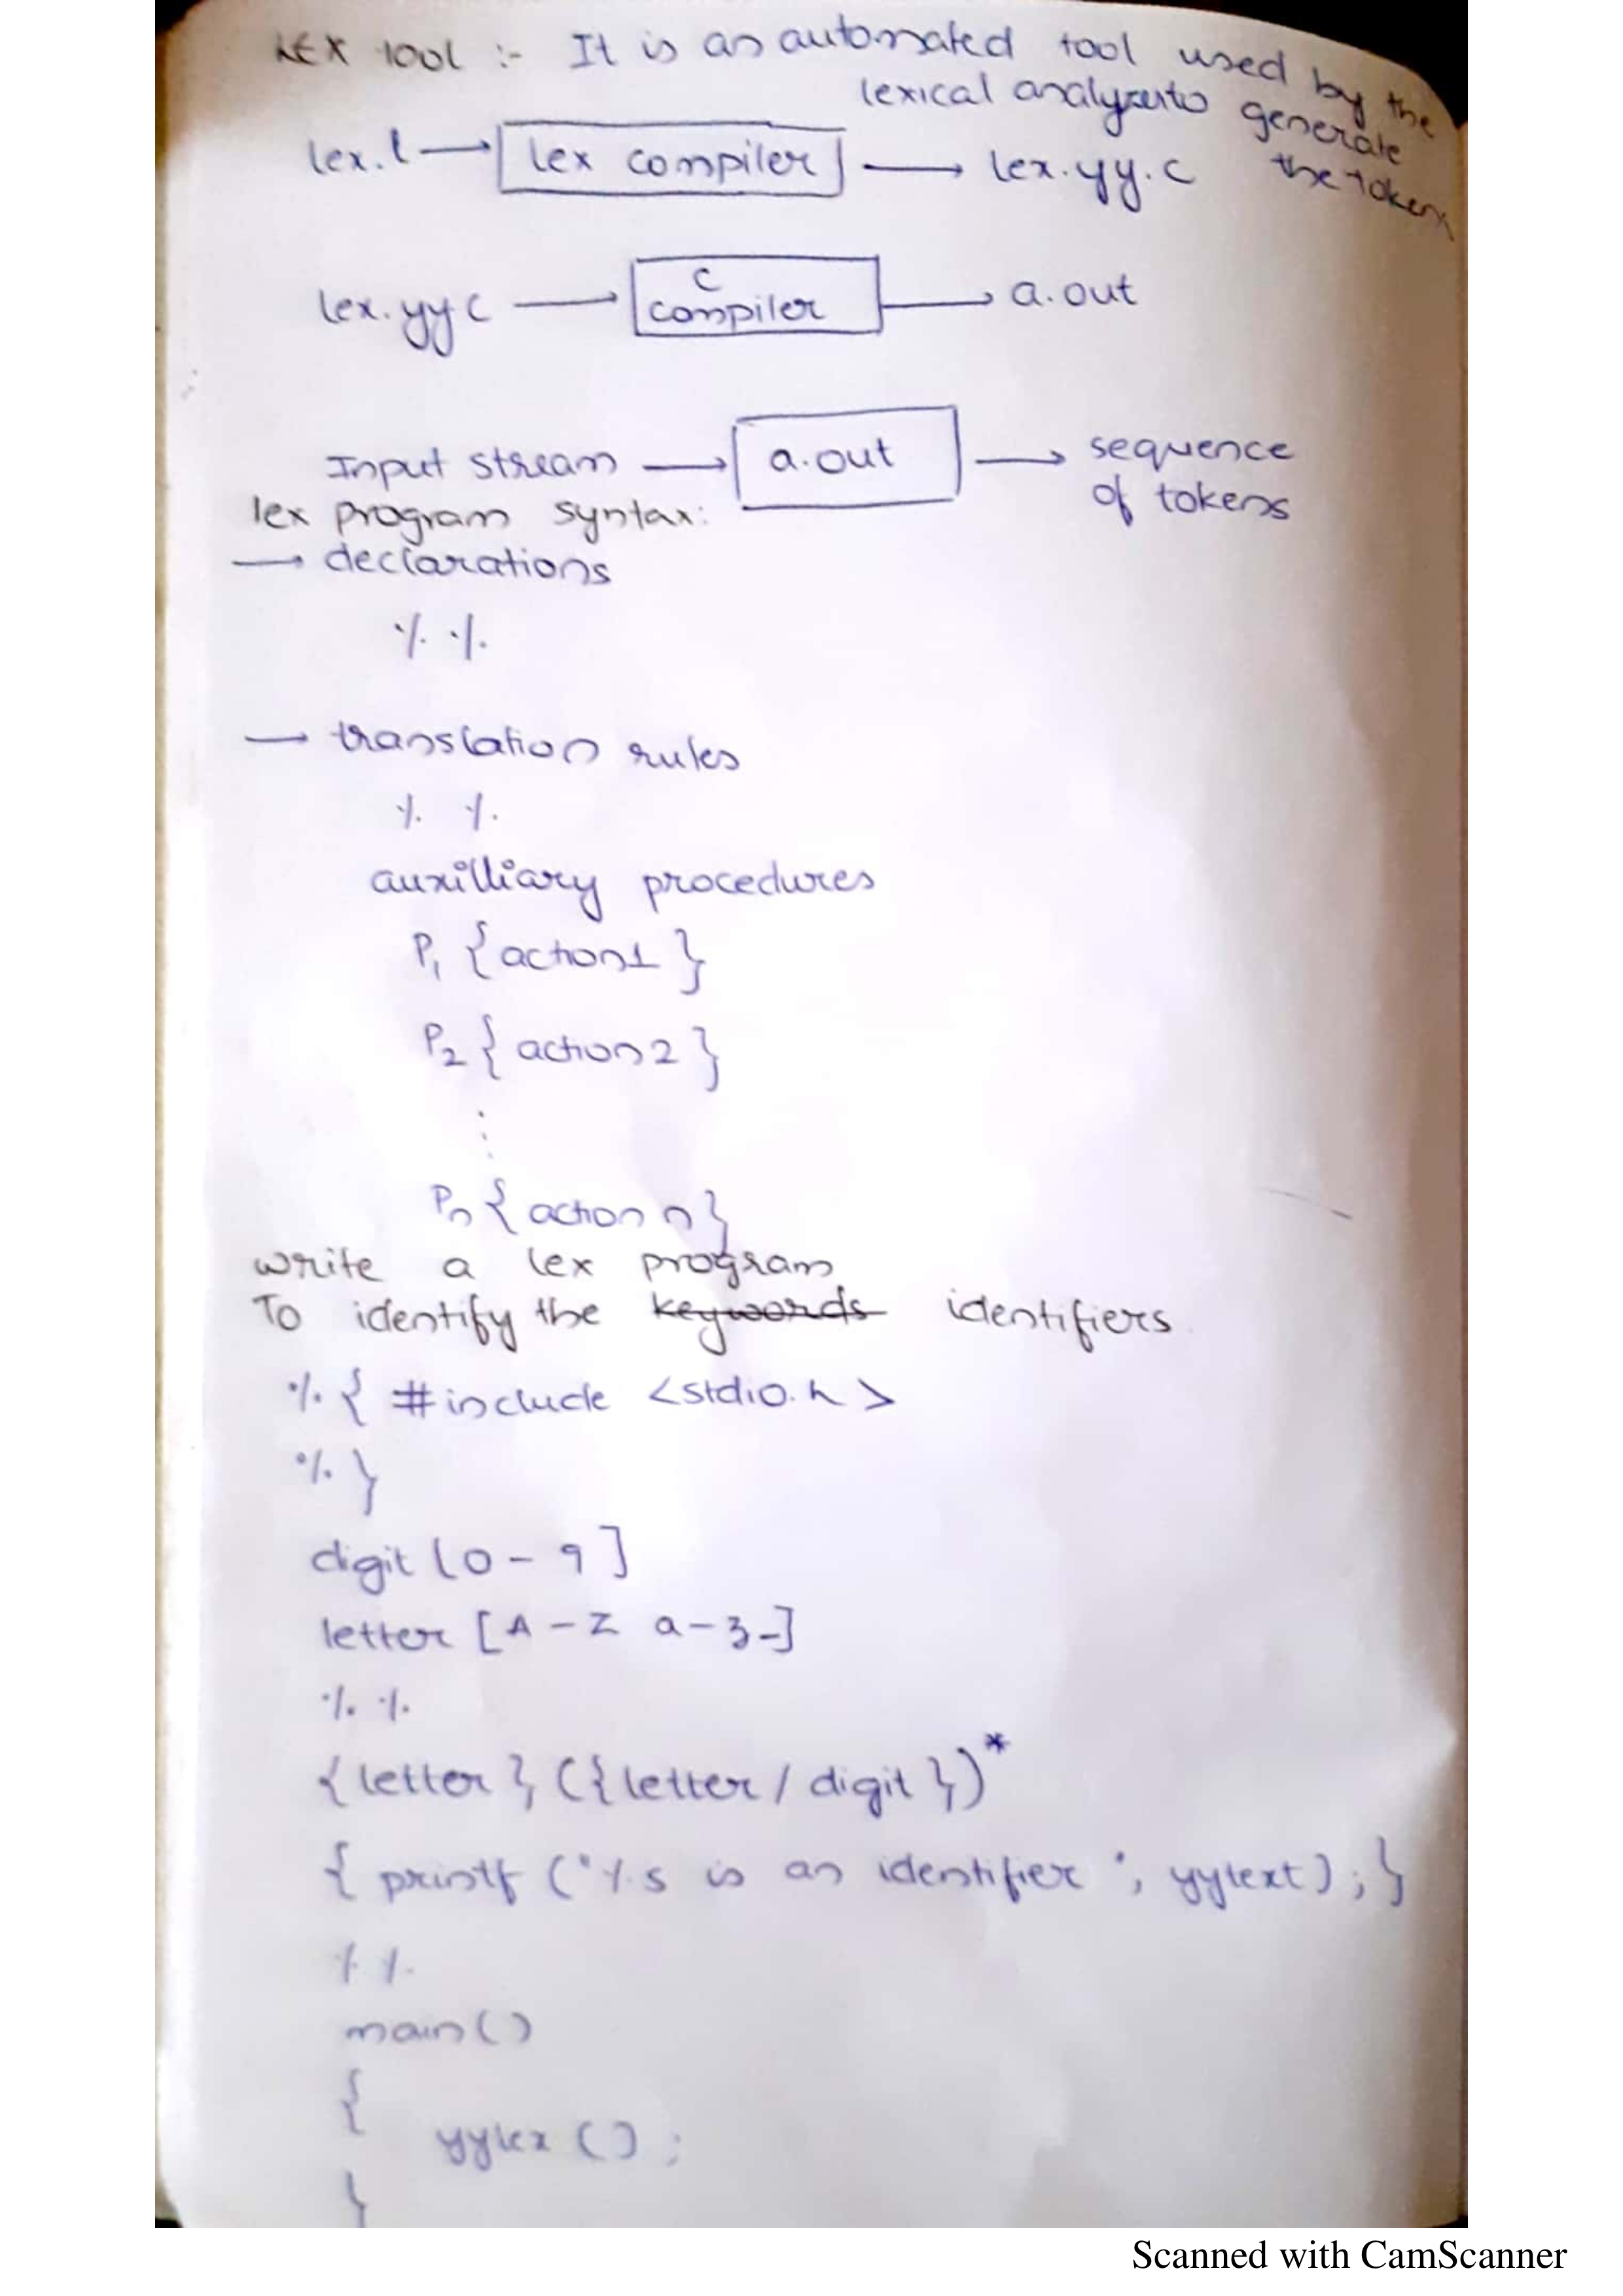 LEX TOOL :- It is an automated tool used by the
lexical analyzer to generate
the tokens
lex.l → lex compiler → lex.yy.c
lex.yy c → c compiler → a.out
Input stream → a.out → sequence of tokens
lex program syntax:
→ declarations
% %
→ translation rules
% %
auxilliary procedures
P1 {action1}
P2 {action 2}
⋮
Pn {action n}
write a lex program
To identify the keywords identifiers
%{ #include <stdio.h>
%}
digit [0-9]
letter [A-Z a-z_]
% %
{letter} ({letter/digit})*
{ printf ("%s is an identifier", yytext); }
% %
main()
{
yylex ();
}
Scanned with CamScanner